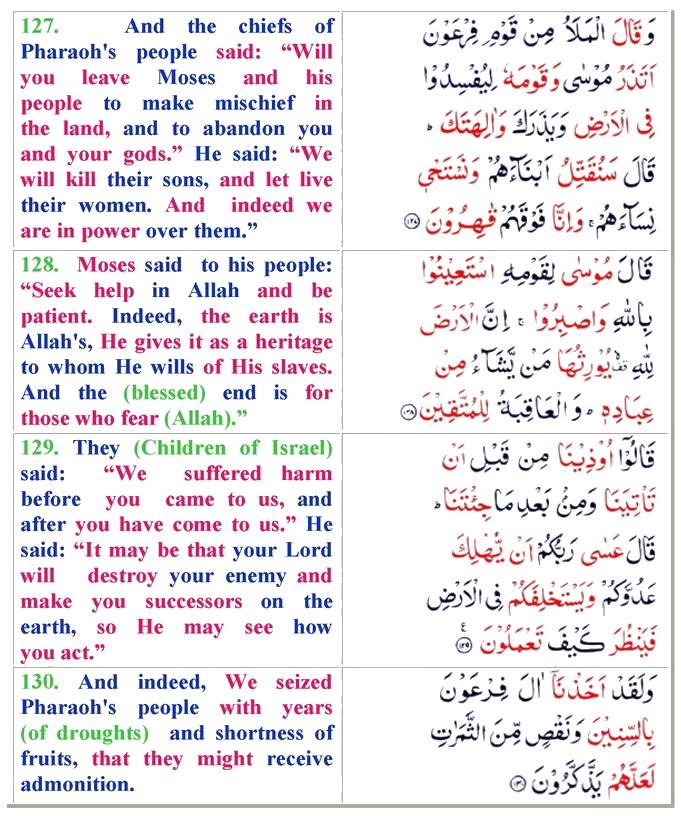 127. And the chiefs of
Pharaoh's people said: “Will
you leave Moses and his
people to make mischief in
the land, and to abandon you
and your gods.” He said: “We
will kill their sons, and let live
their women. And indeed we
are in power over them.”
وَقَالَ الْمَلَاُ مِنْ قَوْمِ فِرْعَوْنَ
اَتَذَرُ مُوْسٰى وَقَوْمَهٗ لِيُفْسِدُوْا
فِى الْاَرْضِ وَيَذَرَكَ وَاٰلِهَتَكَ ؕ
قَالَ سَنُقَتِّلُ اَبْنَآءَهُمْ وَنَسْتَحْىٖ
نِسَآءَهُمْ ۚ وَاِنَّا فَوْقَهُمْ قٰهِرُوْنَ ﴿۱۲۷﴾
128. Moses said to his people:
“Seek help in Allah and be
patient. Indeed, the earth is
Allah's, He gives it as a heritage
to whom He wills of His slaves.
And the (blessed) end is for
those who fear (Allah).”
قَالَ مُوْسٰى لِقَوْمِهِ اسْتَعِيْنُوْا
بِاللّٰهِ وَاصْبِرُوْا ۚ اِنَّ الْاَرْضَ
لِلّٰهِ ۙ يُوْرِثُهَا مَنْ يَّشَآءُ مِنْ
عِبَادِهٖ ؕ وَالْعَاقِبَةُ لِلْمُتَّقِيْنَ ﴿۱۲۸﴾
129. They (Children of Israel)
said: “We suffered harm
before you came to us, and
after you have come to us.” He
said: “It may be that your Lord
will destroy your enemy and
make you successors on the
earth, so He may see how
you act.”
قَالُوْۤا اُوْذِيْنَا مِنْ قَبْلِ اَنْ
تَاْتِيَنَا وَمِنْۢ بَعْدِ مَا جِئْتَنَا ؕ
قَالَ عَسٰى رَبُّكُمْ اَنْ يُّهْلِكَ
عَدُوَّكُمْ وَيَسْتَخْلِفَكُمْ فِى الْاَرْضِ
فَيَنْظُرَ كَيْفَ تَعْمَلُوْنَ ﴿۱۲۹﴾ ع
130. And indeed, We seized
Pharaoh's people with years
(of droughts) and shortness of
fruits, that they might receive
admonition.
وَلَقَدْ اَخَذْنَاۤ اٰلَ فِرْعَوْنَ
بِالسِّنِيْنَ وَنَقْصٍ مِّنَ الثَّمَرٰتِ
لَعَلَّهُمْ يَذَّكَّرُوْنَ ﴿۱۳۰﴾